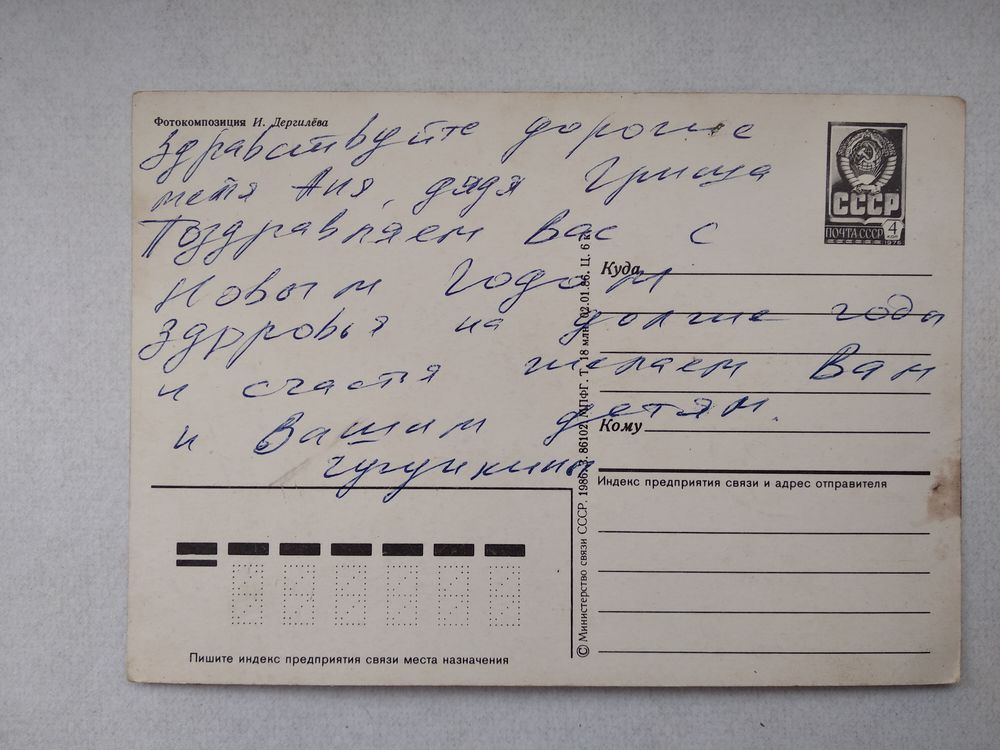 Фотокомпозиция И. Дергилёва
Здравствуйте дорогие
тетя Аня, дядя Гриша
Поздравляем Вас с
Новым Годом
Здоровья на долгие годы
и счастя желаем Вам
и Вашим детям.
СССР
ПОЧТА СССР 4 коп
1976
Куда
Кому
Индекс предприятия связи и адрес отправителя
© Министерство связи СССР. 1986. З. 86102. МПФГ. Т. 18 млн. 02.01.86. Ц. 6 к.
Пишите индекс предприятия связи места назначения